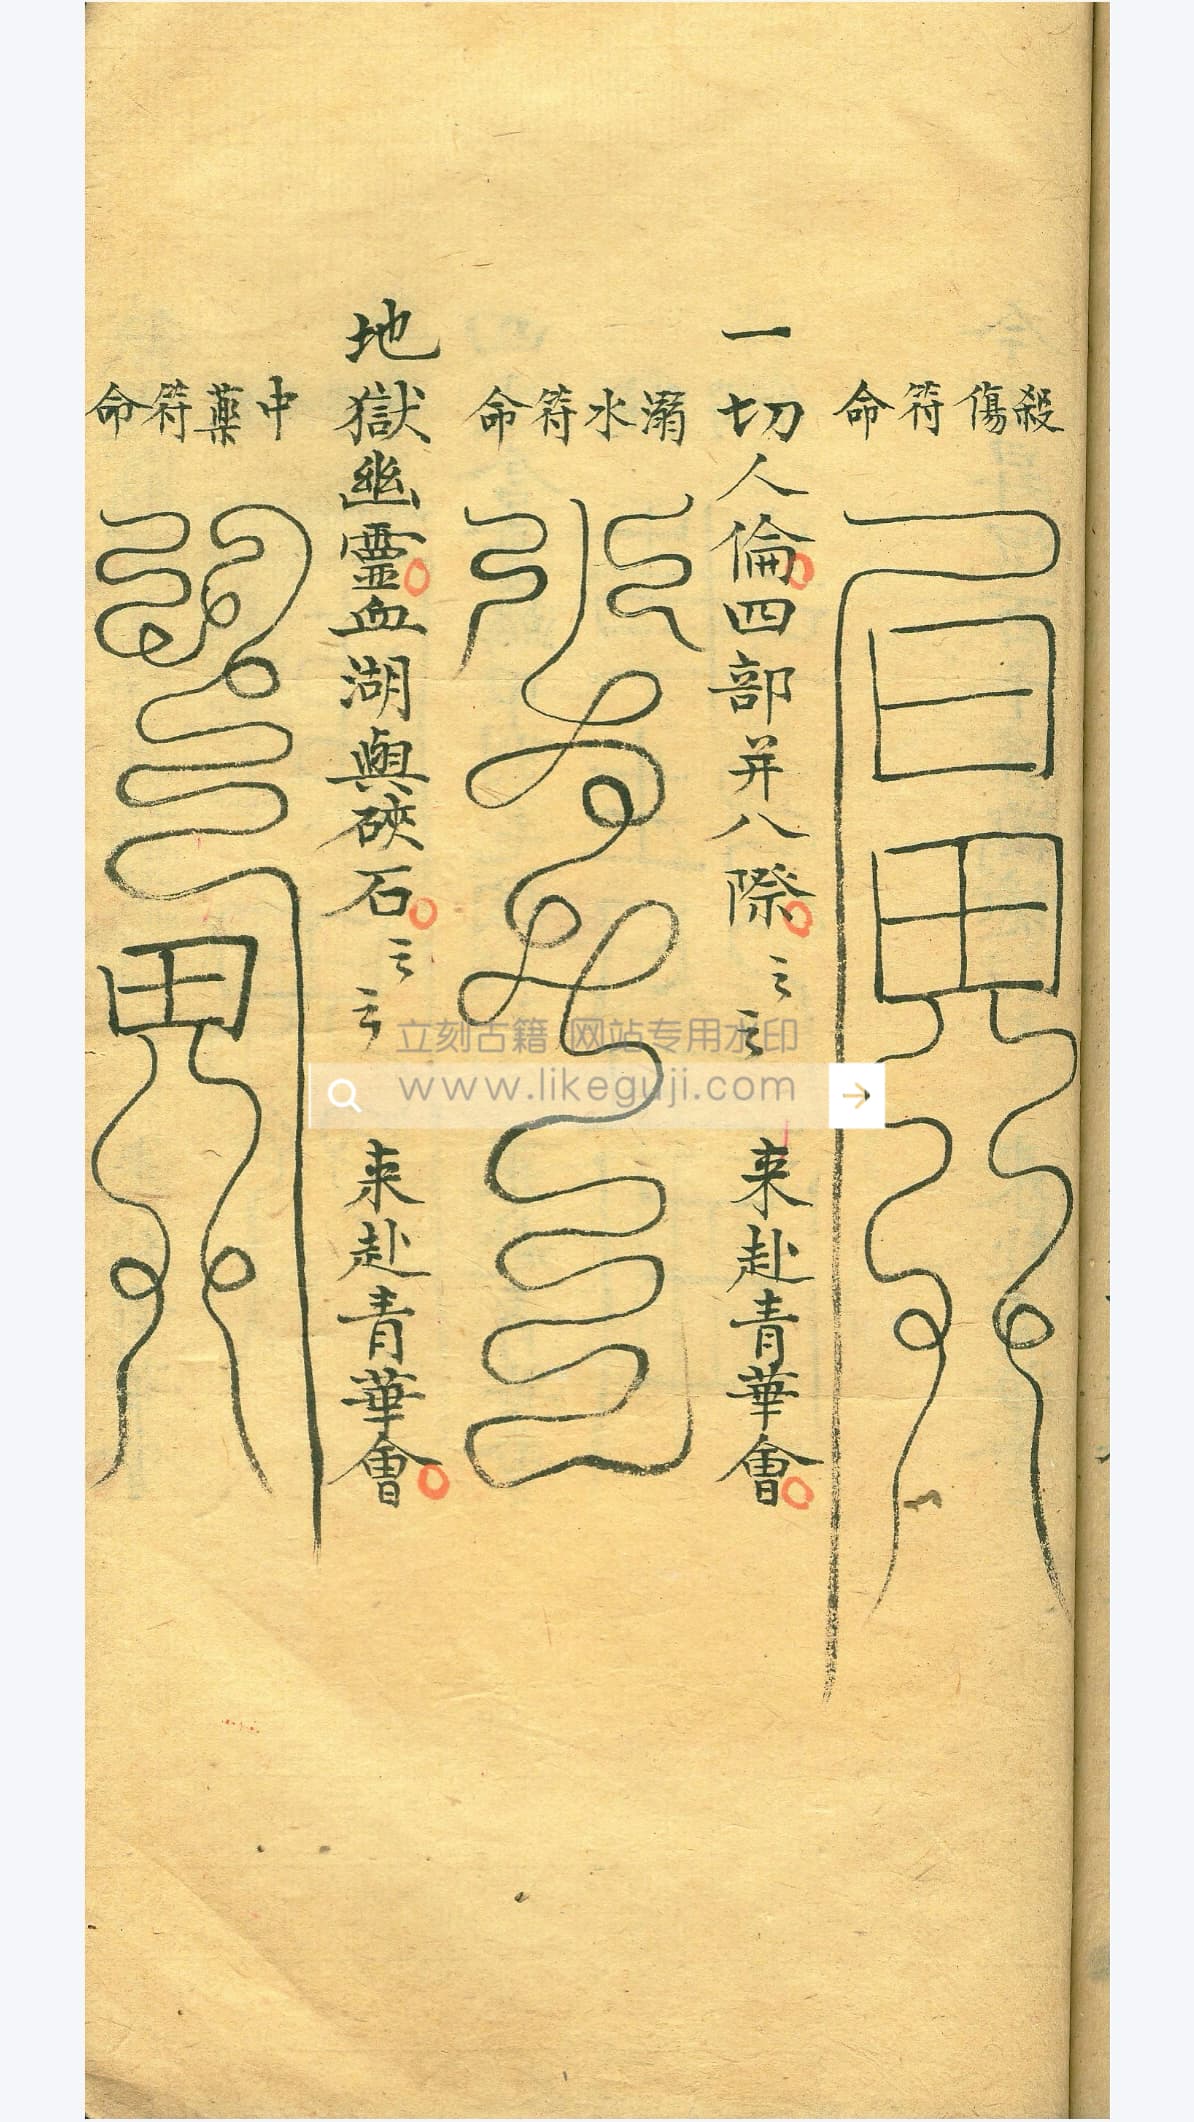 殺傷符命
一切人倫四部并八際云云 来赴青華會
溺水符命
地獄幽霊血湖與硤石云云 来赴青華會
中藥符命
立刻古籍 网站专用水印
www.likeguji.com